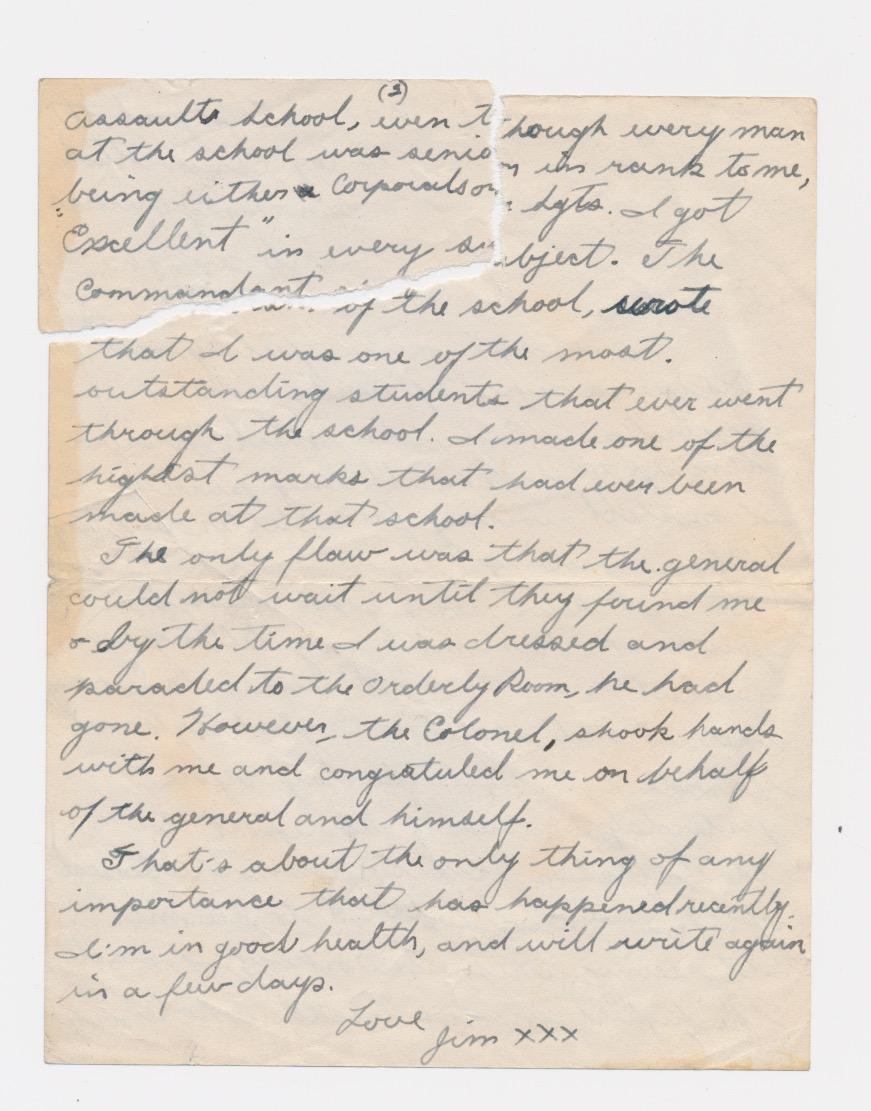 (2)
assault school, even though every man
at the school was senior in rank to me,
being either Corporals or Sgts. I got
"Excellent" in every subject. The
Commandant of the school, wrote
that I was one of the most.
outstanding students that ever went
through the school. I made one of the
highest marks that had ever been
made at that school.
The only flaw was that the general
could not wait until they found me
& by the time I was dressed and
paraded to the Orderly Room, he had
gone. However, the Colonel, shook hands
with me and congratuled me on behalf
of the general and himself.
That's about the only thing of any
importance that has happened recently.
I'm in good health, and will write again
in a few days.
Love
Jim xxx